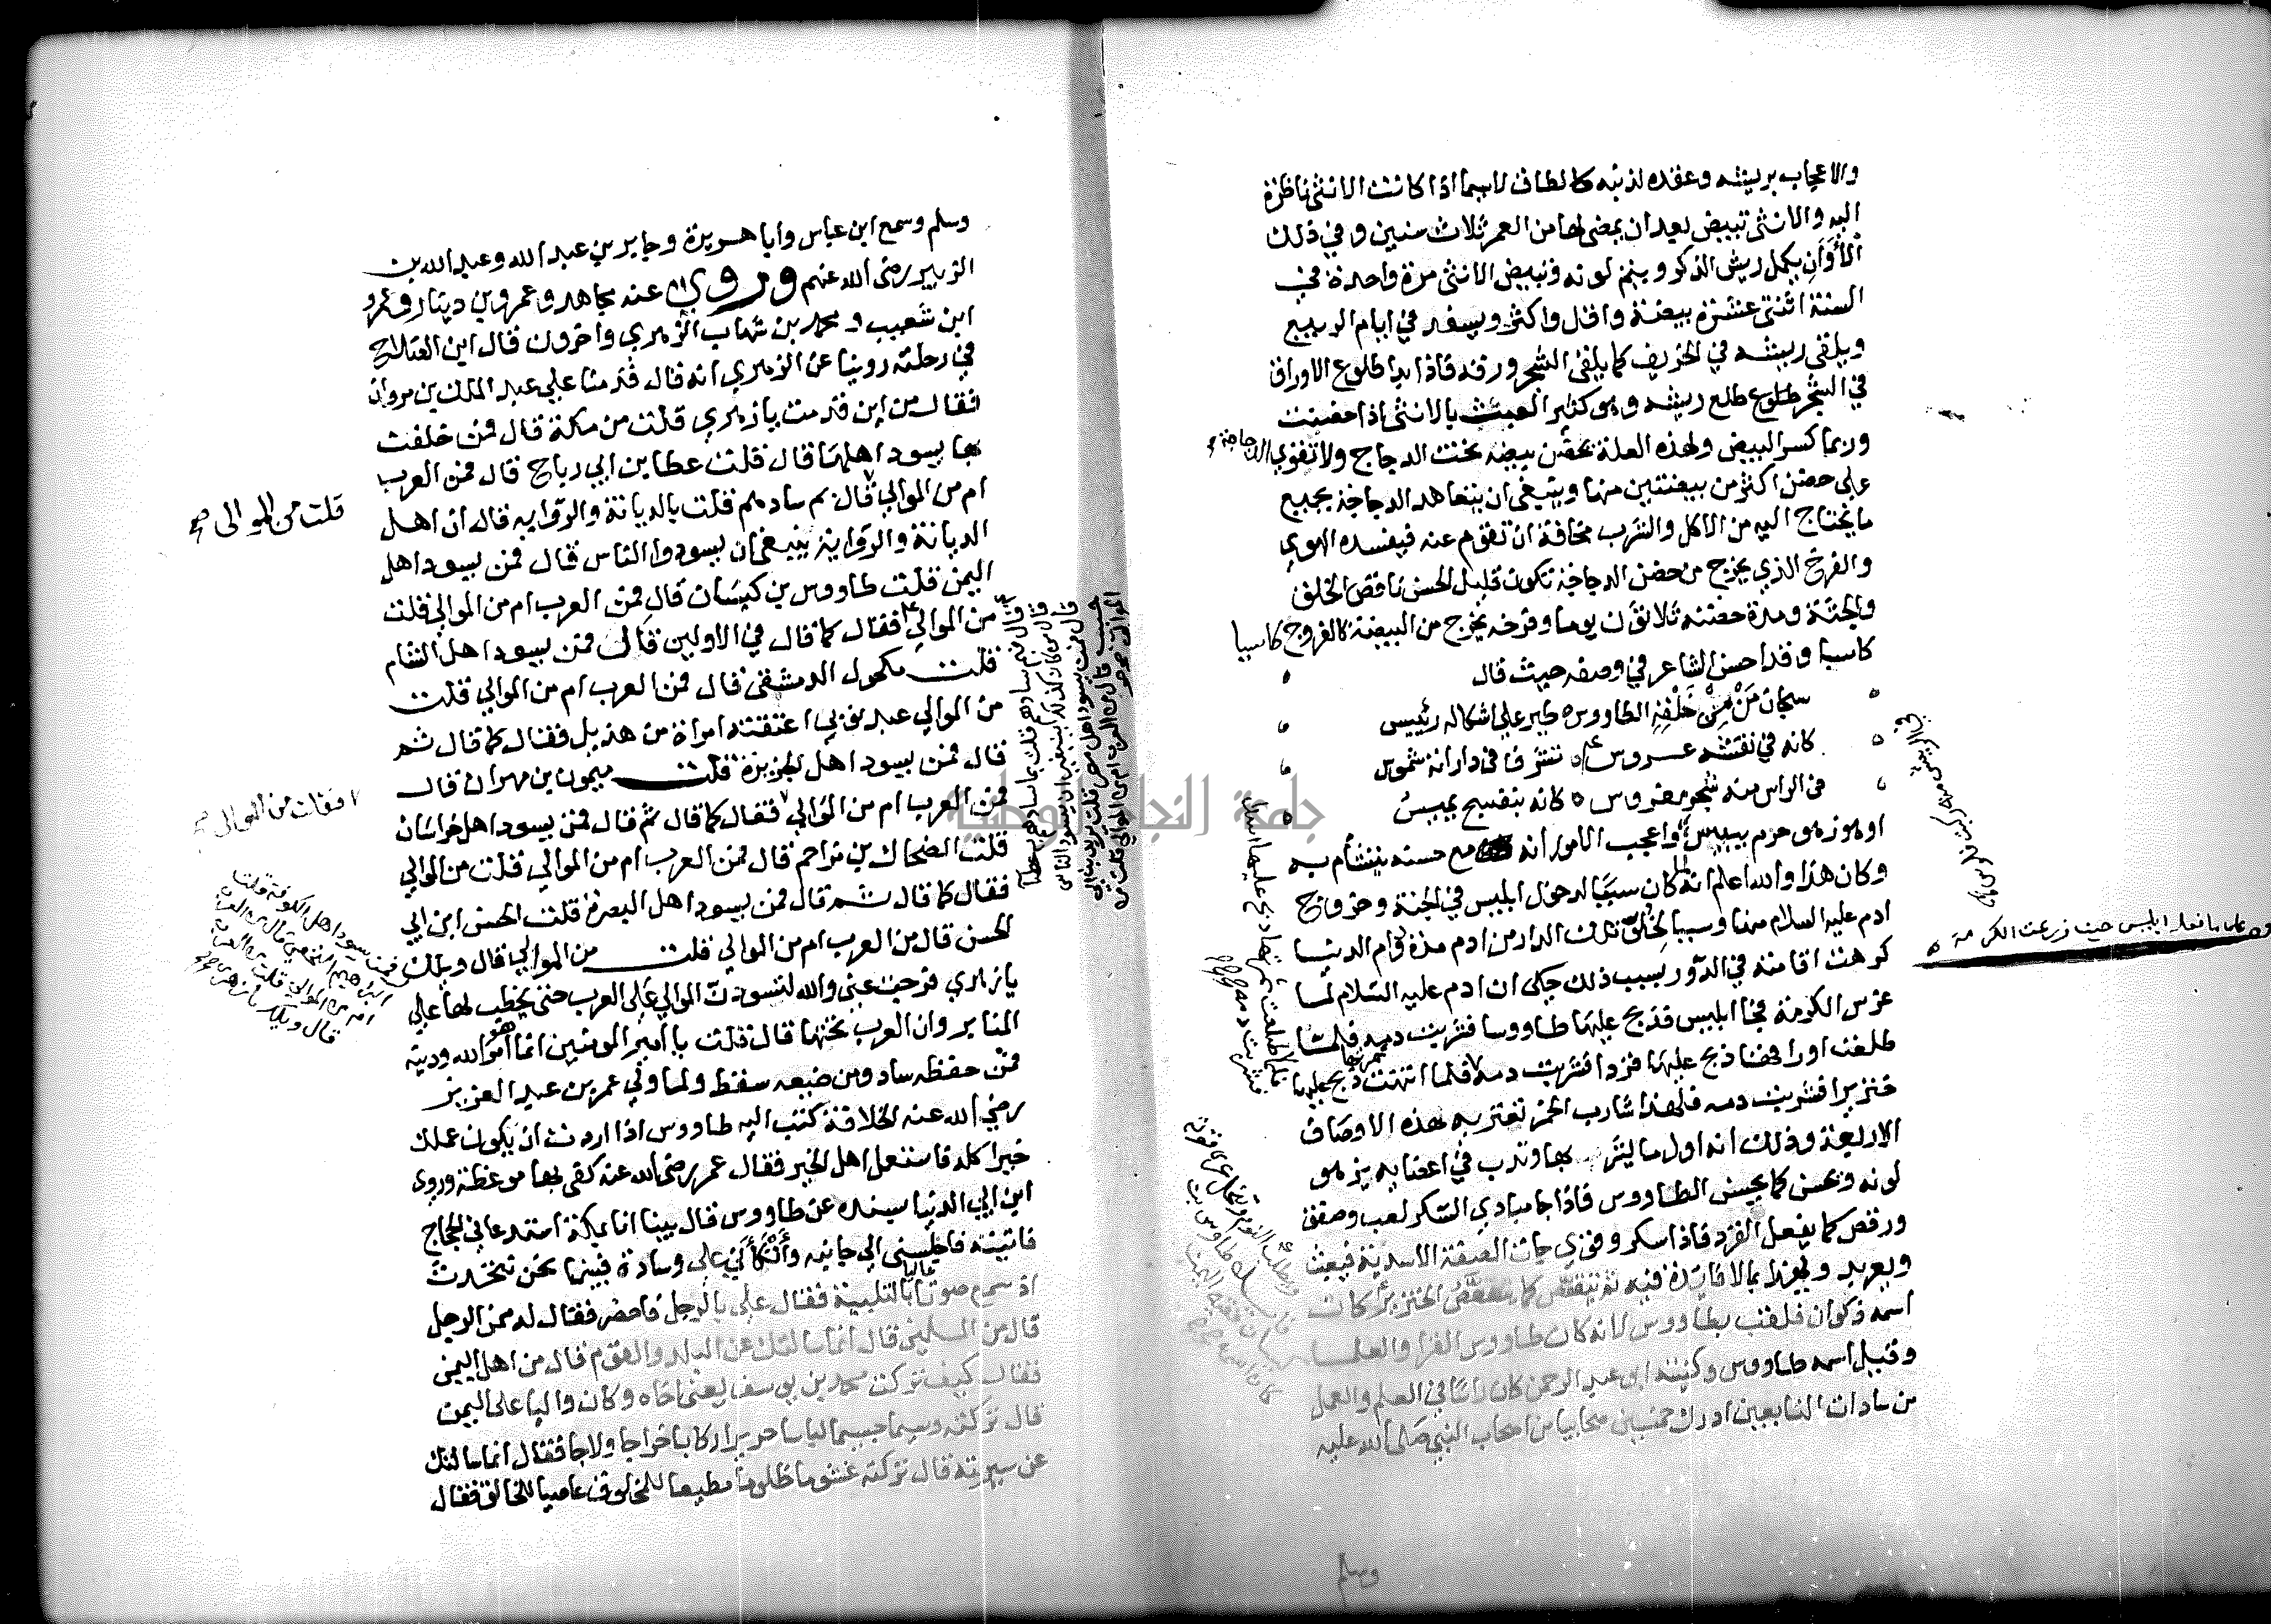 والاعجاب بريشه وعقده لذنبه كالطاق لاسيما اذا كانت الانثى ناظرة
اليه والانثى تبيض بعد ان يمضى لها من العمر ثلاث سنين وفي ذلك
الأوان يكمل ريش الذكر ويتم لونه وتبيض الانثى مرة واحدة في
السنة اثنتى عشرة بيضة واقل واكثر ويسفد في ايام الربيع
ويلقى ريشه في الخريف كما يلقى الشجر ورقه فاذا بدا طلوع الاوراق
في الشجر طلع ريشه وهو كثير العبث بالانثى اذا حضنت
وربما كسر البيض ولهذه العلة يحضن بيضه تحت الدجاج ولا تقوى الدجاجة
على حضن اكثر من بيضتين منها وينبغى ان يتعاهد الدجاجة بجميع
ما يحتاج اليه من الاكل والشرب مخافة ان تقوم عنه فيفسده الهوى
والفرخ الذي يخرج من حضن الدجاجة تكون قليل الحسن ناقص الخلق
والجثة ومدة حضنه ثلاثون يوما وفرخه يخرج من البيضة كالفروج كاسيا
كاسبا وقد احسن الشاعر في وصفه حيث قال
سبحان من من خلقه الطاووس طير على اشكاله رئيس
كانه في نقشه عروس
في الراس منه شجر مغروس كانه بنفسج يميس
او هو زهو حرم يبيس واعجب الامور انه مع حسنه يتشأم به
وكان هذا والله اعلم انه لما كان سببا لدخول ابليس في الجنة وخروج
ادم عليه السلام منها وسببا لخلو تلك الدار من ادم مدة دوام الدنيا
كرهت اقامته في الدور بسبب ذلك حكى ان ادم عليه السلام لما
غرس الكرمة فجا ابليس فذبح عليها طاووسا فشربت دمه فلما
طلعت اوراقها ذبح عليها قردا فشربت دمه فلما انتهت ذبح عليها
خنزيرا فشربت دمه فلهذا شارب الخمر تعتريه هذه الاوصاف
الاربعة وذلك انه اول ما يشربها وتدب في اعضايه يزهو
لونه وتحسن كما يحسن الطاووس فاذا جا مبادي السكر لعب وصفق
ورقص كما يفعل القرد فاذا سكر وقوى جات الصفة الاسدية فيعبث
ويعربد ويهذى بما لا فايدة فيه ثم يتقعص كما يتقعص الخنزير
اسمه ذكوان فلقب بطاووس لانه كان طاووس القرا والعلما
وقيل اسمه طاووس وكنيته ابو عبد الرحمن كان راسا في العلم والعمل
من سادات التابعين ادرك خمسين صحابيا من اصحاب النبي صلى الله عليه
وسلم
وصل ما فعل ابليس حيث زرعت الكرمة
وسلم وسمع ابن عباس وابا هريرة وجابر بن عبد الله وعبد الله بن
الزبير رضى الله عنهم وروى عنه مجاهد وعمرو بن دينار وعمرو
ابن شعيب ومحمد بن شهاب الزهري واخرون قال ابن الصلاح
في رحلته روينا عن الزهري انه قال قدمت على عبد الملك بن مروان
فقال من اين قدمت يا زهري قلت من مكة قال فمن خلفت
بها يسود اهلها قال قلت عطا بن ابي رباح قال فمن العرب
ام من الموالي قال بم سادهم قلت بالديانة والرواية قال ان اهل
الديانة والرواية ينبغى ان يسودوا الناس قال فمن يسود اهل
اليمن قلت طاووس بن كيسان قال فمن العرب ام من الموالي قلت
من الموالي فقال كما قال في الاولين قال فمن يسود اهل الشام
قلت مكحول الدمشقى قال فمن العرب ام من الموالي قلت
من الموالي عبد نوبي اعتقته امراة من هذيل فقال كما قال ثم
قال فمن يسود اهل الجزيرة قلت ميمون بن مهران قال
فمن العرب ام من الموالي فقال كما قال ثم قال فمن يسود اهل خراسان
قلت الضحاك بن مزاحم قال فمن العرب ام من الموالي قلت من الموالي
فقال كما قال ثم قال فمن يسود اهل البصرة قلت الحسن ابن ابي
الحسن قال من العرب ام من الموالي قلت من الموالي قال ويلك
يا زهري فرجت عنى والله لتسودن الموالي على العرب حتى يخطب لها على
المنابر وان العرب تحتها قال قلت يا امير المومنين انما هو امر الله ودينه
فمن حفظه ساد ومن ضيعه سقط ولما ولي عمر بن عبد العزيز
رضي الله عنه الخلافة كتب اليه طاووس اذا اردت ان يكون عملك
خيرا كله فاستعمل اهل الخير فقال عمر رضى الله عنه كفى بها موعظة وروى
ابن ابي الدنيا بسنده عن طاووس قال بينا انا بمكة استدعاني الحجاج
فاتيته فاجلسنى الى جانبه وأتكأني على وسادة فبينما نحن نتحدث
اذ سمع صوتا عاليا بالتلبية فقال على بالرجل فاحضر فقال له ممن الرجل
قال من المسلمين قال انما سالتك عن البلد والقوم قال من اهل اليمن
فقال كيف تركت محمد بن يوسف يعنى اخاه وكان واليا على اليمن
قال تركته وسيما جسيما لباسا حريرا ركابا خراجا ولاجا فقال انما سالتك
عن سيرته قال تركته غشوما ظلوما مطيعا للمخلوق عاصيا للخالق فقال
قلت من الموالى صح
قلت من الموالى صح
فمن يسود اهل الكوفة قلت
ابراهيم النخعي قال من العرب
ام من الموالي قلت من العرب
قال ويلك يا زهرى
جامعة النجاح الوطنية